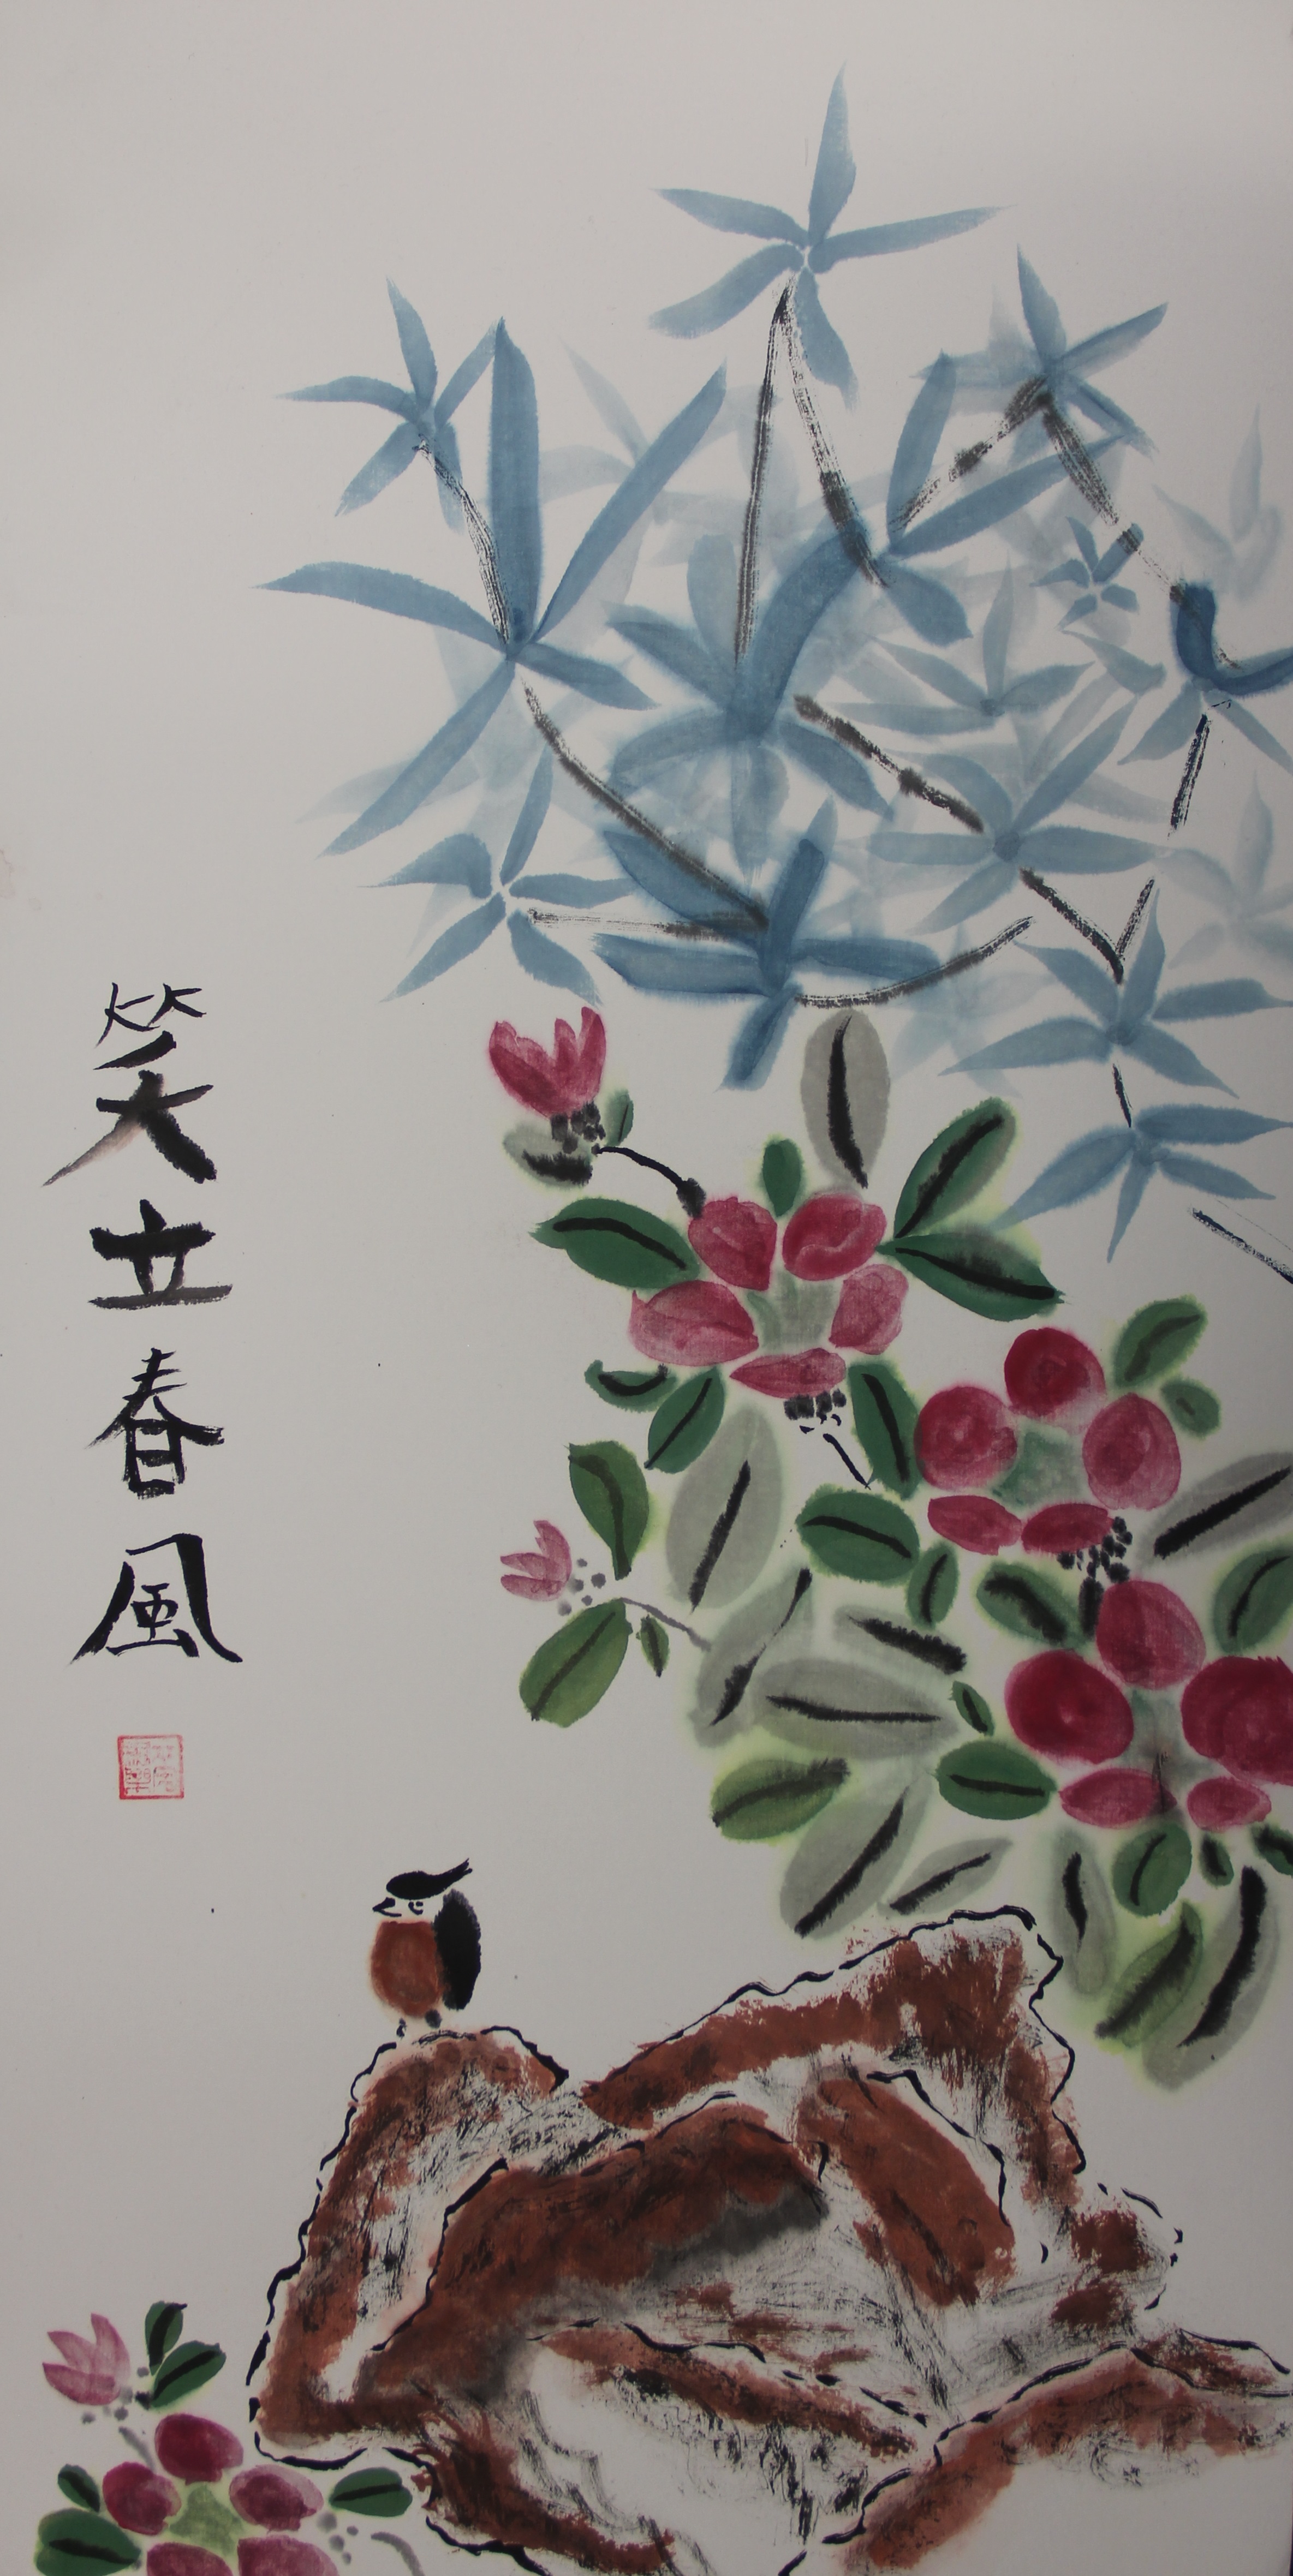 笑立春風